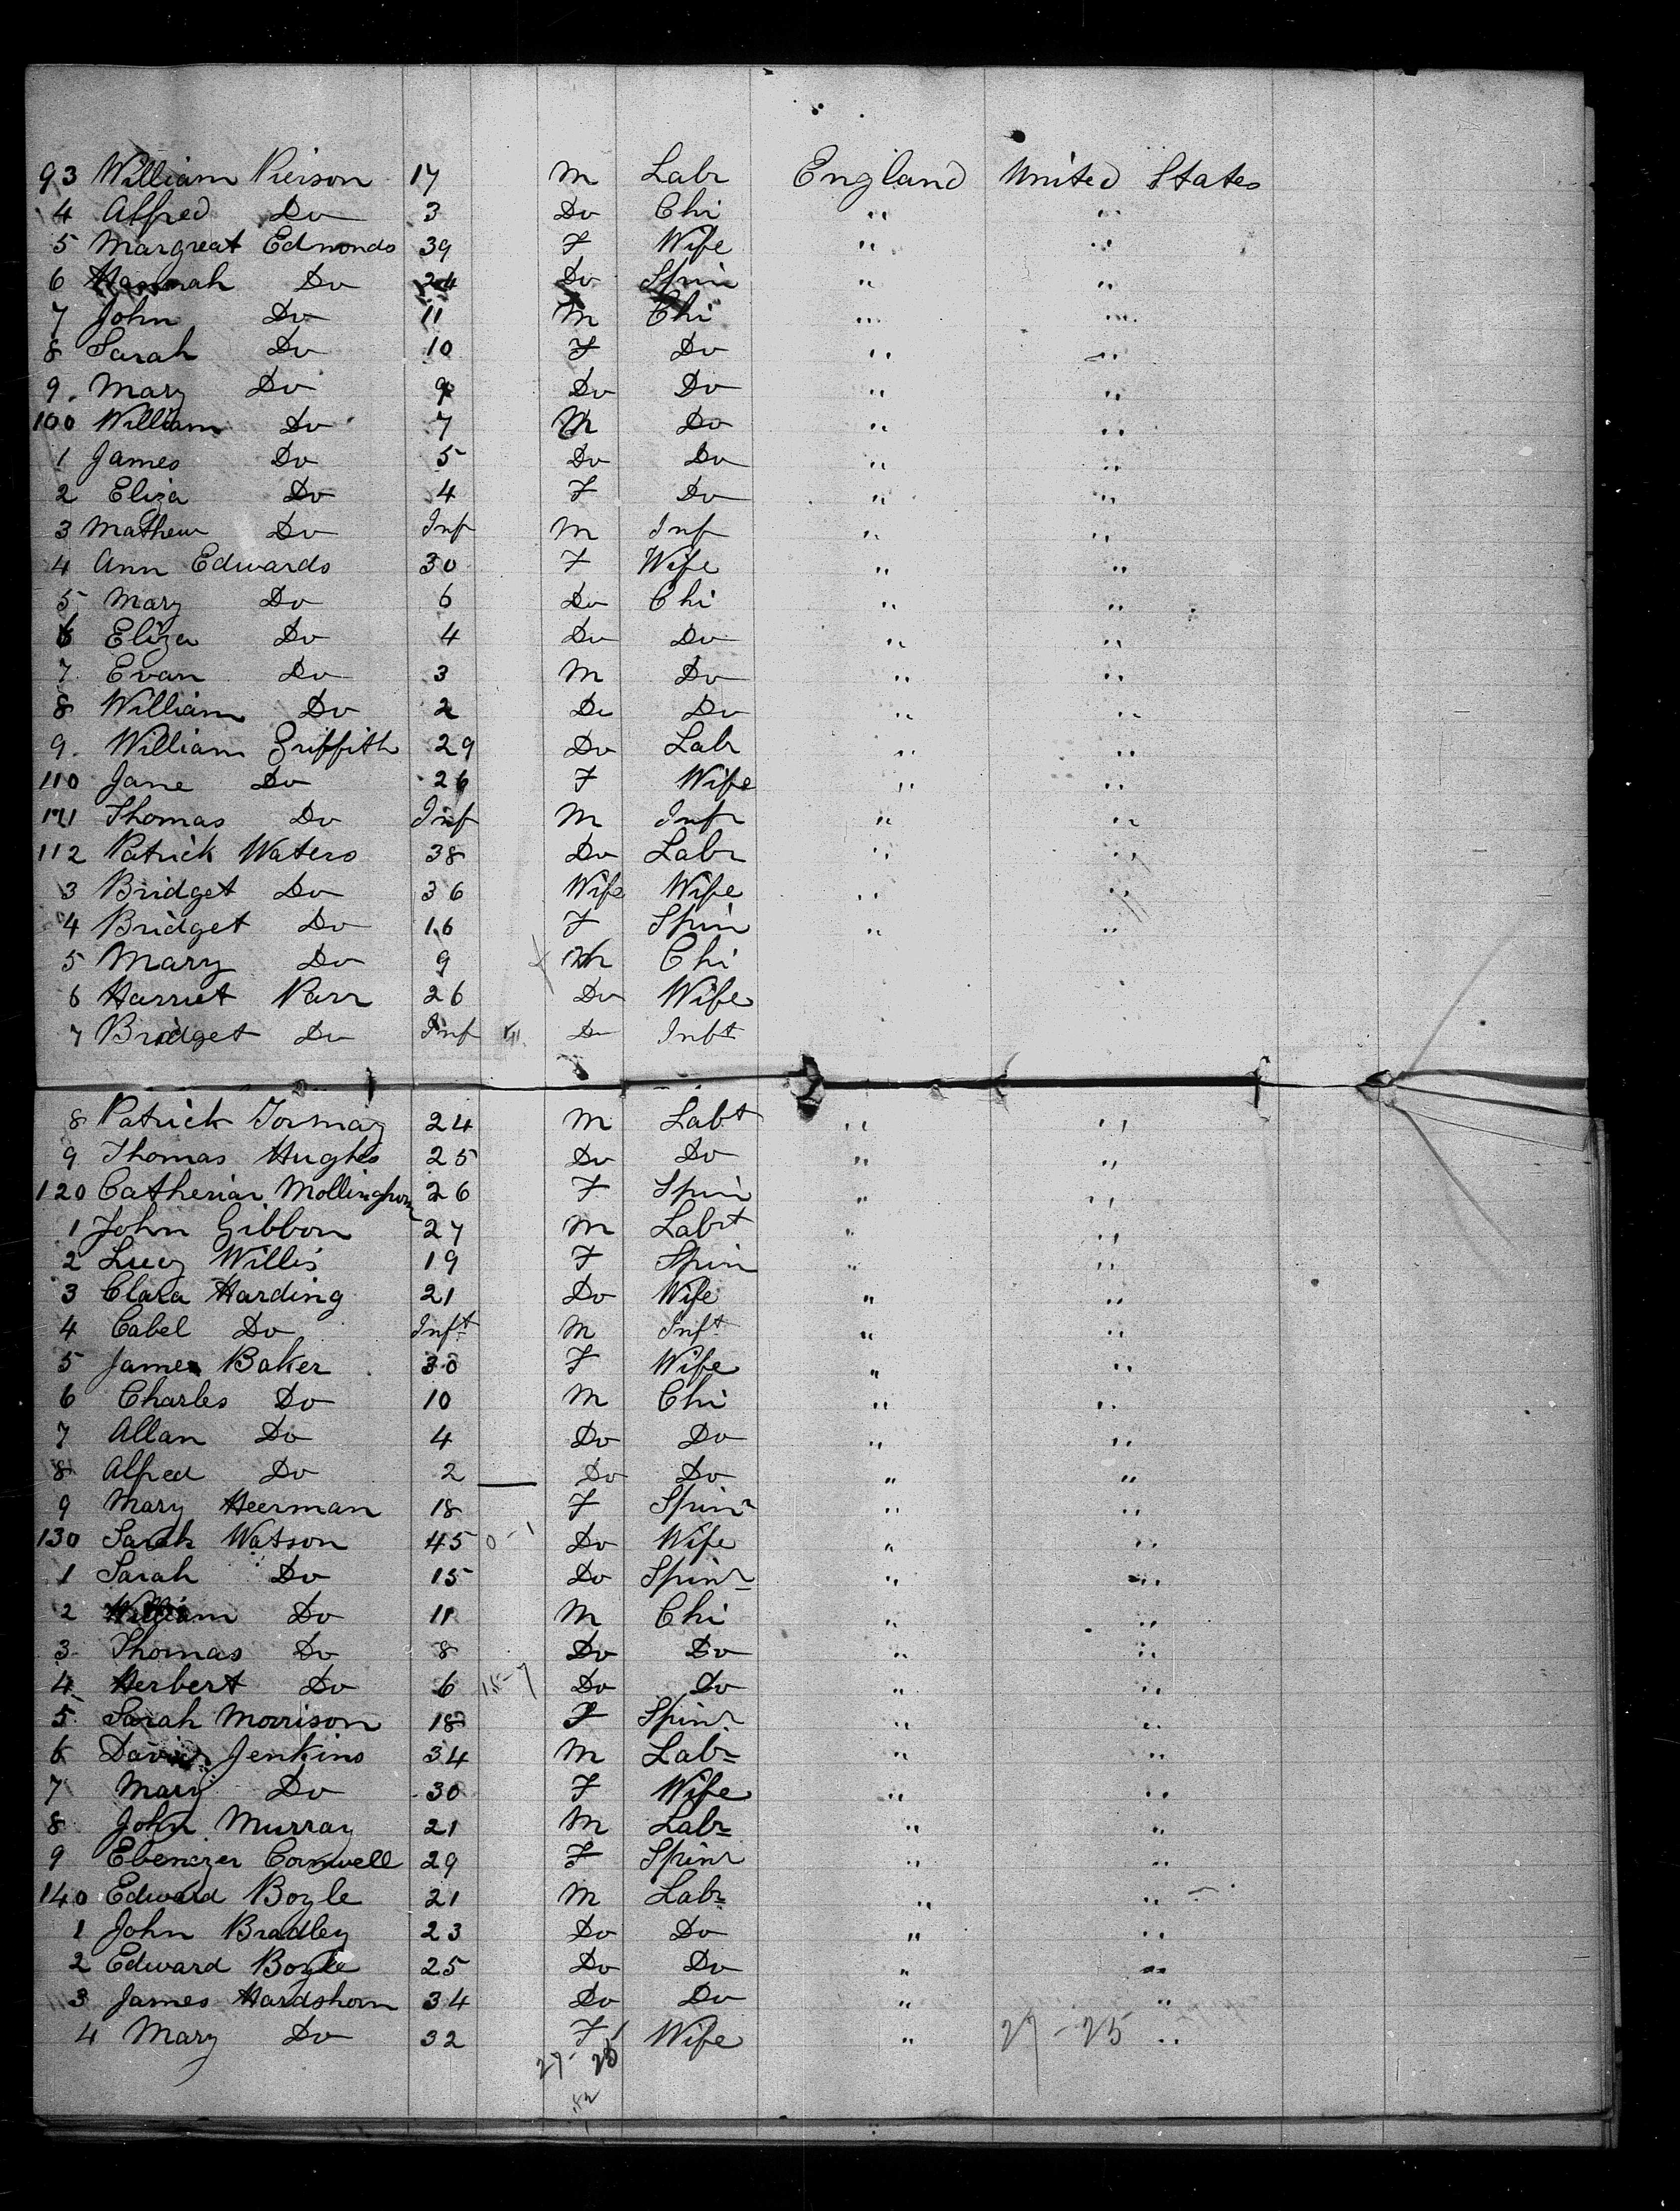 93 William Pierson 17 M Labr England United States
4 Alfred Do 3 Do Chi " "
5 Margreat Edmonds 39 F Wife " "
6 Hannah Do 24 Do Spin " "
7 John Do 11 M Chi " "
8 Sarah Do 10 F Do " "
9. Mary Do 9 Do Do " "
100 William Do 7 M Do " "
1 James Do 5 Do Do " "
2 Eliza Do 4 F Do " "
3 Mathew Do Inf M Inf " "
4 Ann Edwards 30 F Wife " "
5 Mary Do 6 Do Chi " "
6 Eliza Do 4 Do Do " "
7 Evan Do 3 M Do " "
8 William Do 2 Do Do " "
9. William Griffith 29 Do Labr " "
110 Jane Do 26 F Wife " "
111 Thomas Do Inf M Inft " "
112 Patrick Waters 38 Do Labr " "
3 Bridget Do 36 Wife Wife " "
4 Bridget Do 16 F Spin " "
5 Mary Do 9 M Chi
6 Harriet Parr 26 Do Wife
7 Bridget Do Inf Do Inft
8 Patrick Tormay 24 M Labt " "
9 Thomas Hughes 25 Do Do " "
120 Catherian 26 F Spin " "
1 John Gibbon 27 M Labrt " "
2 Lucy Willis 19 F Spin " "
3 Clara Harding 21 Do Wife " "
4 Cabel Do Inft M Inft " "
5 James Baker 30 F Wife " "
6 Charles Do 10 M Chi " "
7 Allan Do 4 Do Do " "
8 Alfred Do 2 Do Do " "
9 Mary Heerman 18 F Spinr " "
130 Sarah Watson 45 Do Wife " "
1 Sarah Do 15 Do Spinr " "
2 William Do 11 M Chi " "
3 Thomas Do 8 Do Do " "
4 Herbert Do 6 Do Do " "
5 Sarah Morrison 18 F Spinr " "
6 David Jenkins 34 M Labr " "
7 Mary Do 30 F Wife " "
8 John Murray 21 M Labr " "
9 Ebenezer Cornwell 29 F Spinr " "
140 Edward Boyle 21 M Labr " "
1 John Bradley 23 Do Do " "
2 Edward Boyle 25 Do Do " "
3 James Hardshorn 34 Do Do " "
4 Mary Do 32 F Wife " 27-25 "
27-25